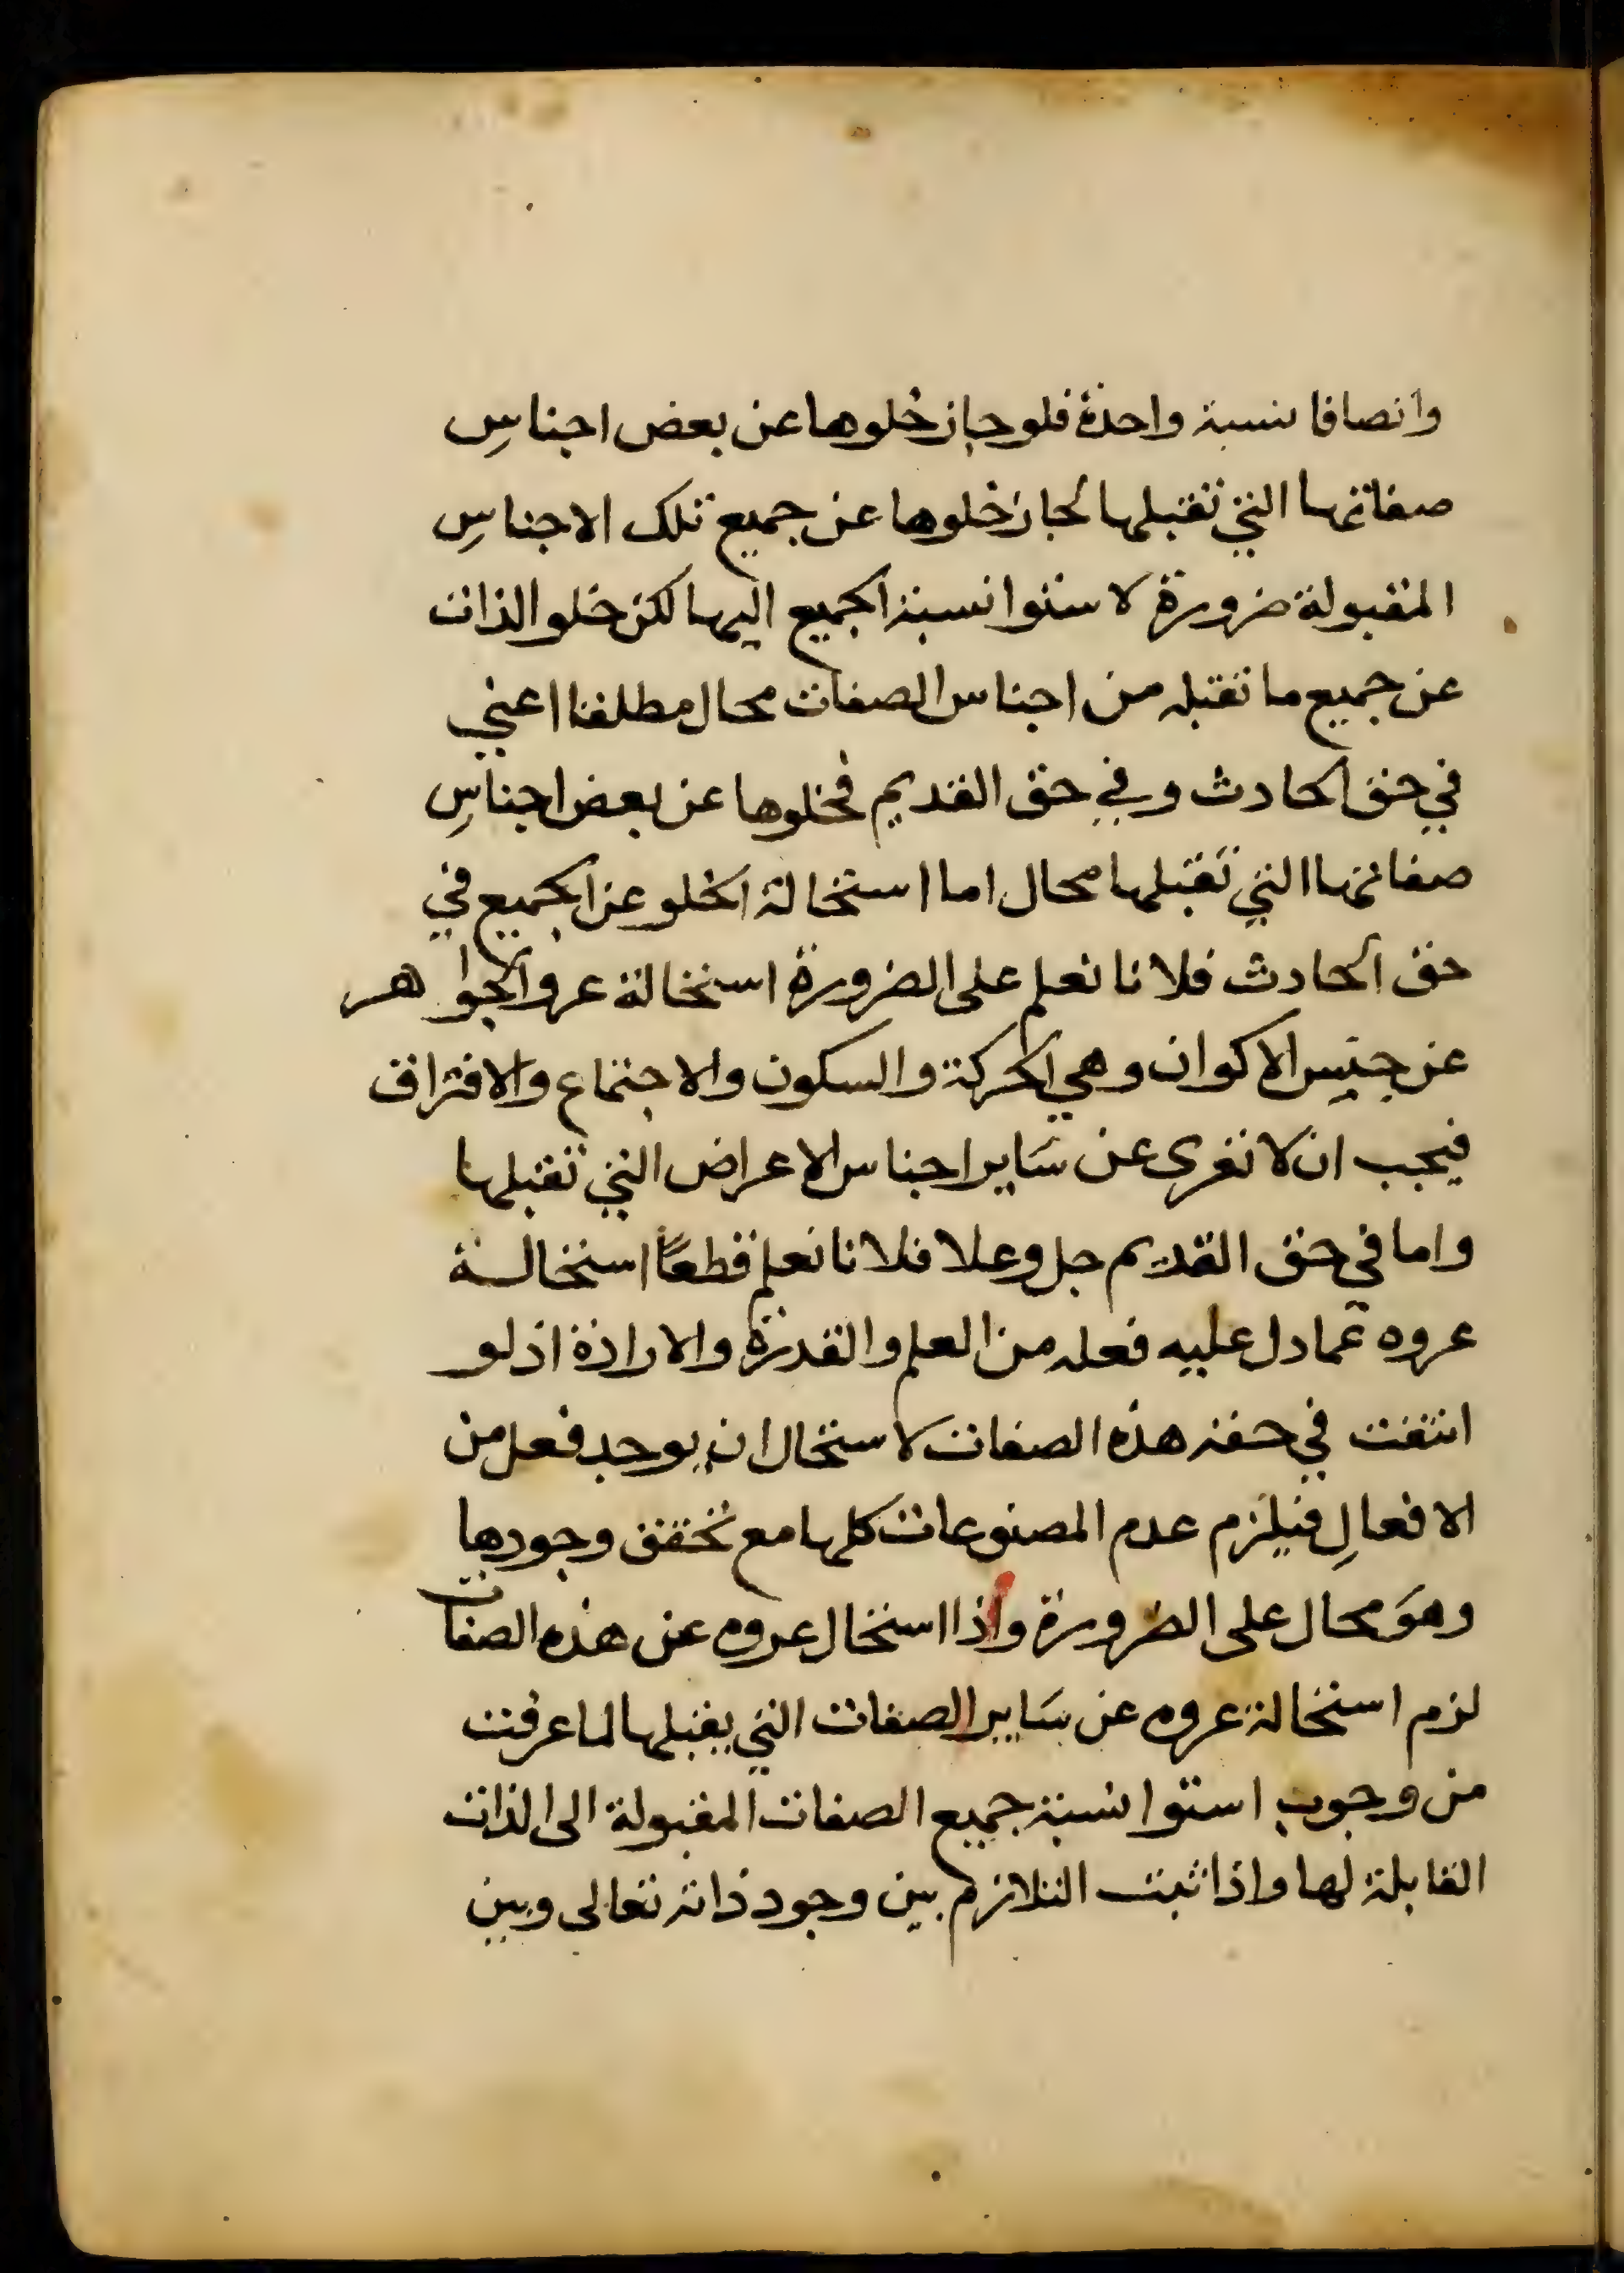 واتصافا نسبة واحدة فلو جاز خلوها عن بعض اجناسِ
صفاتها التي تقبلها لجاز خلوها عن جميع تلك الاجناسِ
المقبولة ضرورة لاستوا نسبة الجميع اليها لكن خلو الذات
عن جميع ما تقبله من اجناس الصفات محال مطلقا اعني
في حق الحادث وفي حق القديم فخلوها عن بعض اجناسِ
صفاتها التي تقبلها محال اما استحالة الخلو عن الجميع في
حق الحادث فلانا نعلم على الضرورة استحالة عرو الجواهر
عن جنس الاكوان وهي الحركة والسكون والاجتماع والافتراق
فيجب ان لا تعرى عن سَاير اجناس الاعراض التي تقبلها
واما في حق القديم جل وعلا فلانا نعلم قطعًا استحالة
عروه عما دل عليه فعله من العلم والقدرة والارادة اذ لو
انتفت في حقه هذه الصفات لاستحال ان يوجد فعل من
الافعالِ فيلزم عدم المصنوعات كلها مع تحقق وجودها
وهوَ محال على الضرورة واذا استحال عروه عن هذه الصفات
لزم استحالة عروه عن سَاير الصفات التي يقبلها لما عرفت
من وجوب استوا نسبة جميع الصفات المقبولة الى الذات
القابلة لها واذا ثبت التلازم بين وجود ذاته تعالى وبين